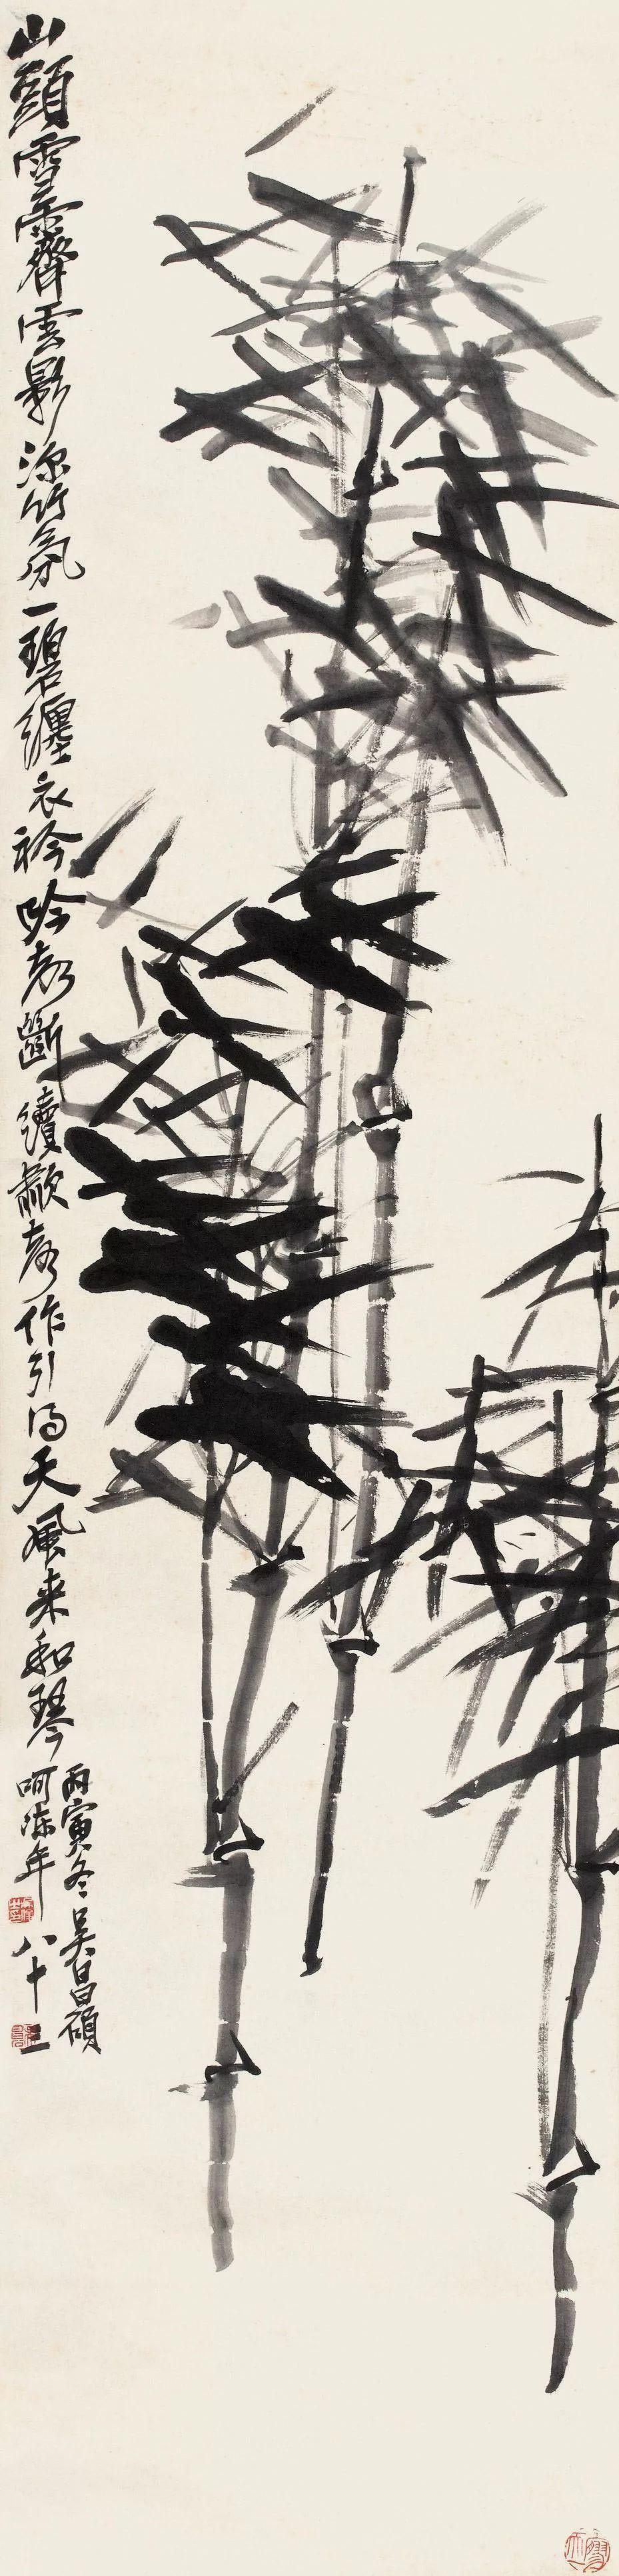 山頭雪霽雲影深竹氛一碧纏衣衿吟聲斷續歗聲作引得天風来和琴
丙寅冬吳昌碩
呵凍年八十三